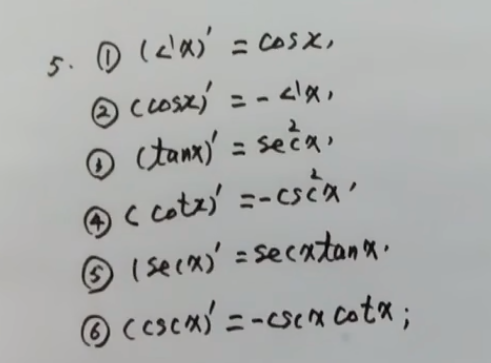 5. ① (<'x)' = cosx,
② (cosx)' = - <'x,
③ (tanx)' = sec²x,
④ (cotx)' = -csc²x,
⑤ (secx)' = secxtanx.
⑥ (cscx)' = -cscx cotx;